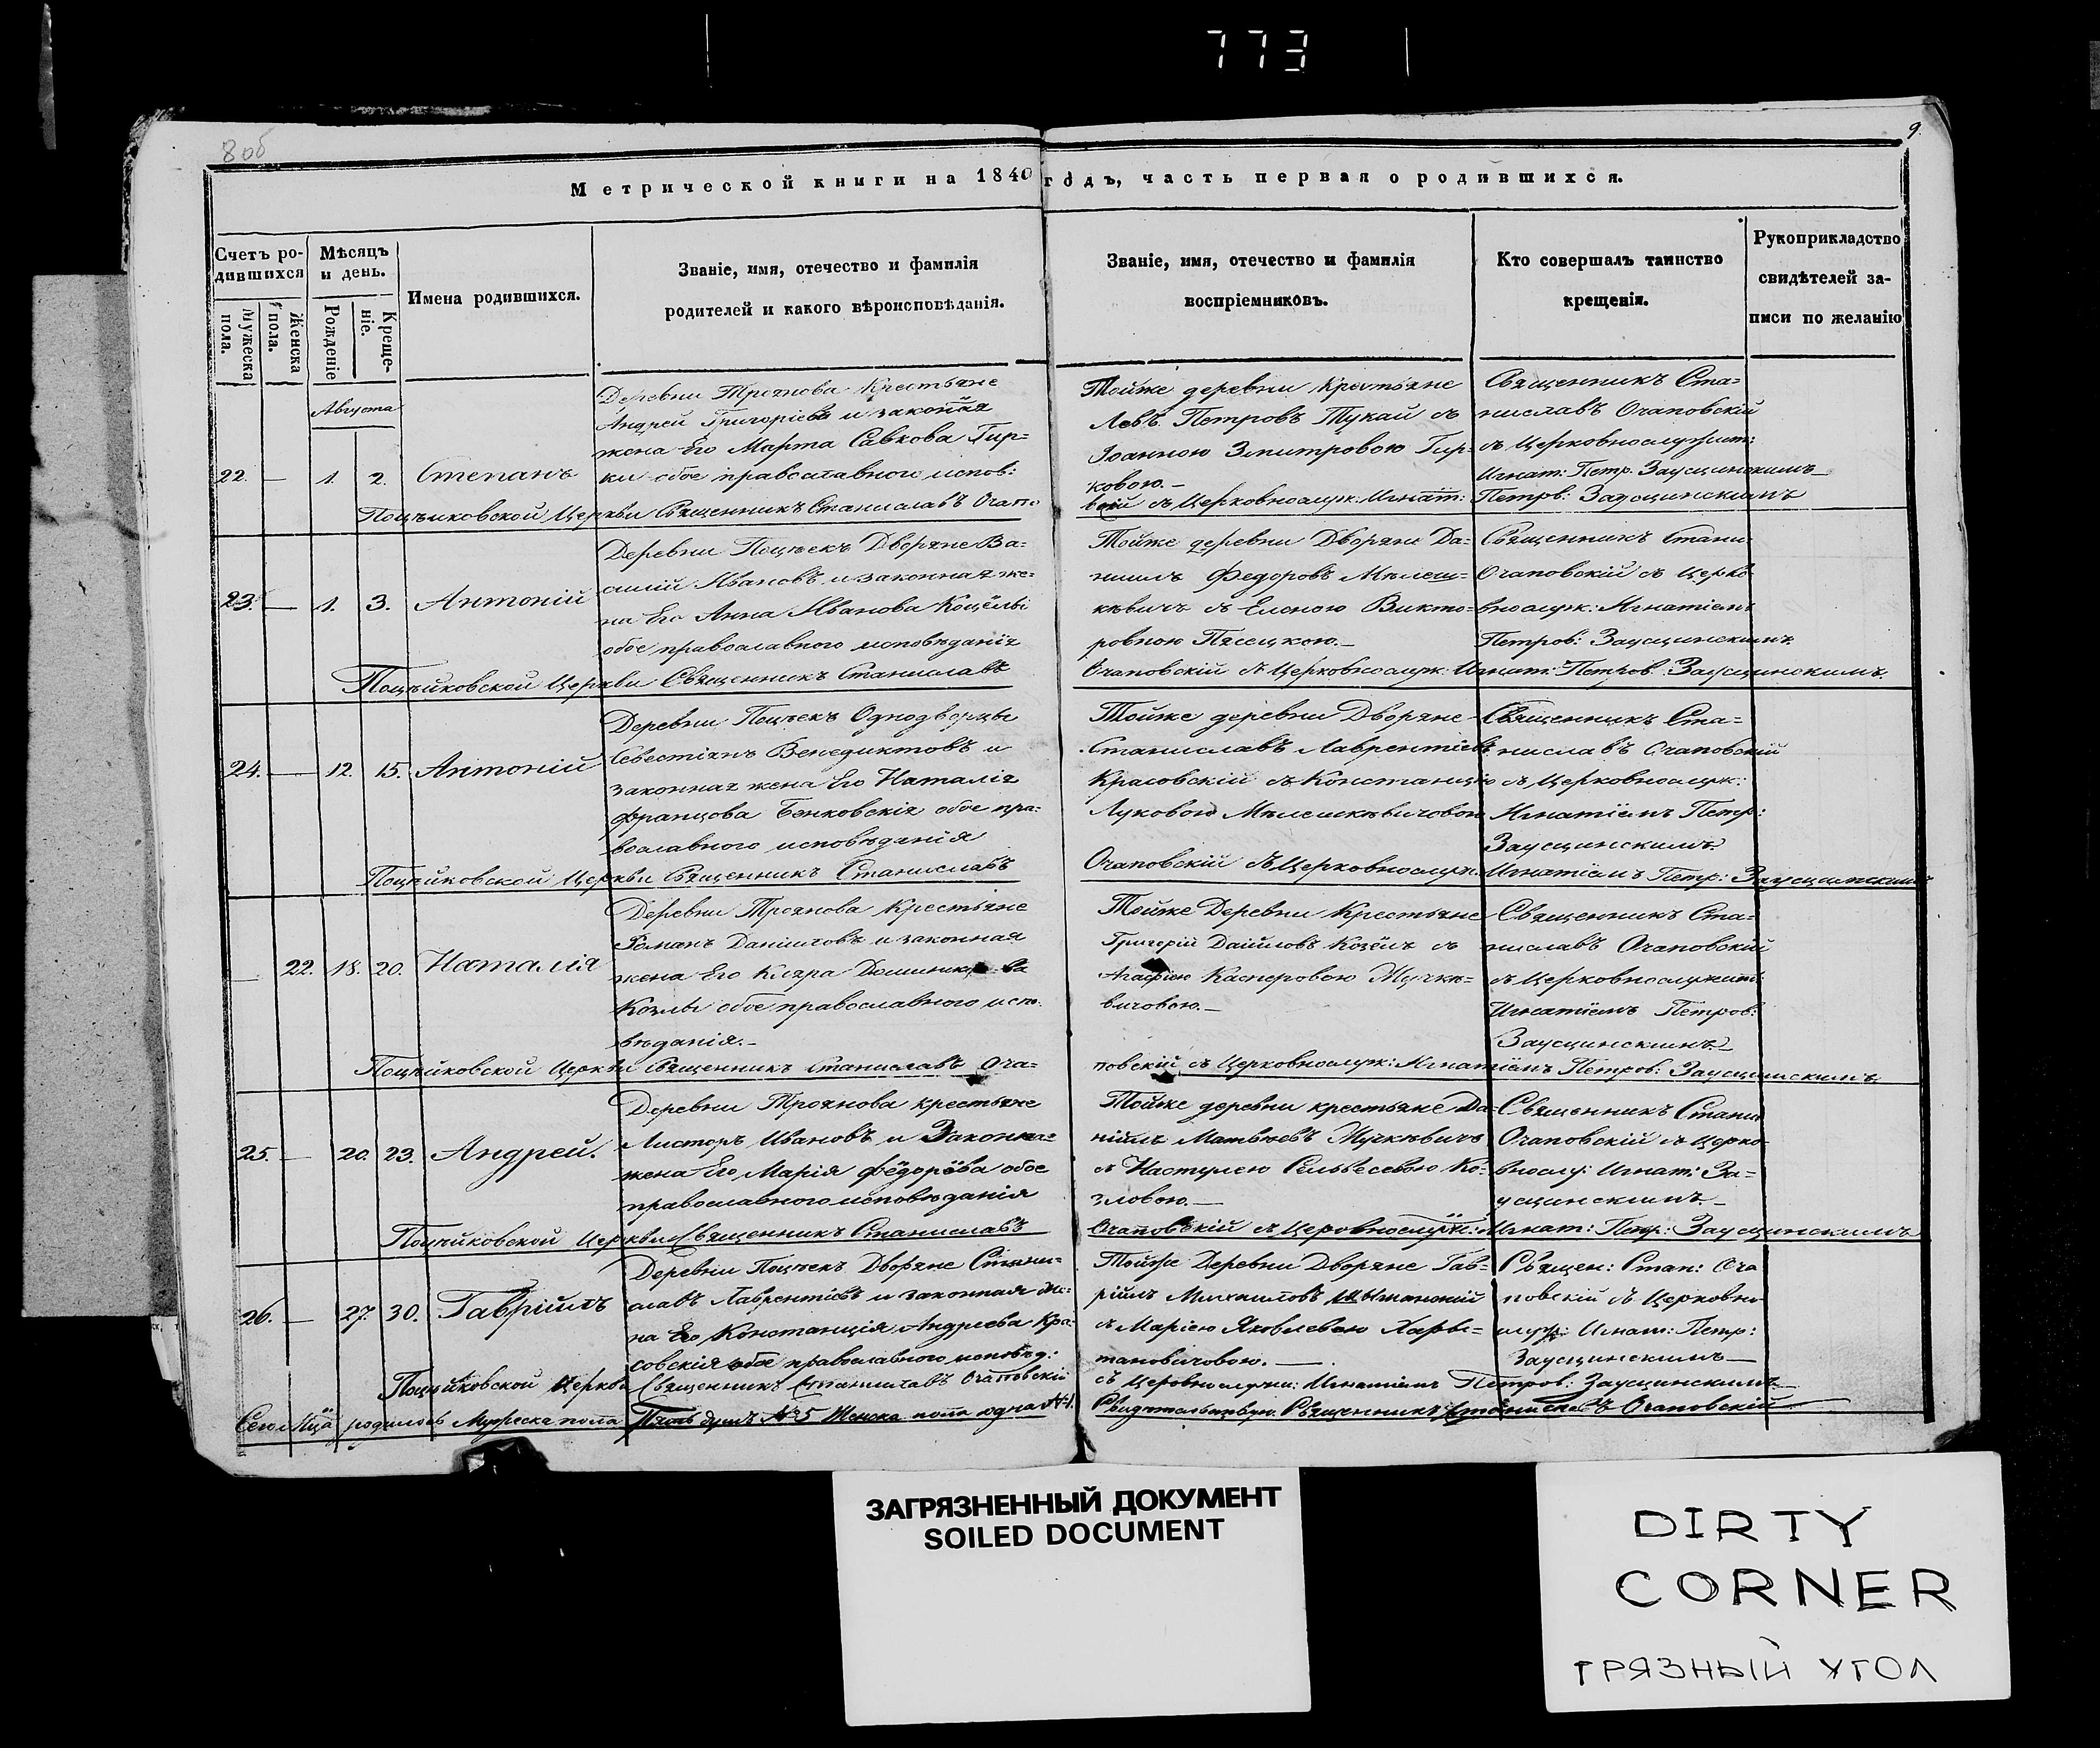 773
8 об
9.
Метрической книги на 1840 годъ, часть первая о родившихся.
Счетъ ро-
дившихся
Мужеска пола.
Женска пола.
Мѣсяцъ
и день.
Рожденіе
Креще-
ніе.
Имена родившихся.
Званіе, имя, отечество и фамилія
родителей и какого вѣроисповѣданія.
Званіе, имя, отечество и фамилія
воспріемниковъ.
Кто совершалъ таинство
крещенія.
Рукоприкладство
свидѣтелей за-
писи по желанію
Августа
22. — 1. 2. Степанъ
Деревни Троянова Крестьяне
Андрей Григоріевъ и законная
жена Его Марта Савкова Гир-
ки обое православного испов:
Тойже деревни Крестьяне
Левъ Петровъ Тукай съ
Іоанною Змитровою Гир-
ковою.—
Священникъ Ста-
ниславъ Очаповскій
съ Церковнослужит:
Игнат: Петр. Заусцинскимъ—
Поцѣйковской Церкви Священникъ Станиславъ Очапо
вскій съ Церковнослуж: Игнат: Петров: Заусцинскимъ
23. — 1. 3. Антоній
Деревни Поцѣекъ Дворяне Ва-
силій Ивановъ и законная же-
на Его Анна Иванова Коцёлы
обое православного исповѣданія
Тойже деревни Дворяне Да-
ніилъ Федоровъ Мѣлеш-
кѣвичъ съ Еленою Викто-
ровною Пясецкою.—
Священникъ Стани
Очаповскій съ Церко-
внослуж: Игнатіемъ
Петров: Заусцинскимъ
Поцѣйковской Церкви Священникъ Станиславъ
Очаповскій съ Церковнослуж: Игнат: Петров: Заусцинскимъ.
24. — 12. 15. Антоній
Деревни Поцѣекъ Однодворцы
Севестіянъ Бенедиктовъ и
законная жена Его Наталія
Францова Бенковскія обое пра-
вославного исповѣданія
Тойже деревни Дворяне
Станиславъ Лаврентіевъ
Красовскій съ Констанціею
Луковою Мѣлешкѣвичовою
Священникъ Ста-
ниславъ Очаповскій
съ Церковнослуж:
Игнатіемъ Петр:
Заусцинскимъ
Поцѣйковской Церкви Священникъ Станиславъ
Очаповскій съ Церковнослуж: Игнатіемъ Петр: Заусцинскимъ
— 22. 18. 20. Наталія
Деревни Троянова Крестьяне
Романъ Даниловъ и законная
жена Его Кляра
Козлы обое православного испо-
вѣданія.—
Тойже Деревни Крестьяне
Григорій Даніиловъ Козёлъ съ
Агафіею Касперовою Мучкѣ-
вичовою.—
Священникъ Ста-
ниславъ Очаповскій
съ Церковнослужит:
Игнатіемъ Петров:
Заусцинскимъ.—
Поцѣйковской Церкви Священникъ Станиславъ Оча-
повскій съ Церковнослуж: Игнатіемъ Петров: Заусцинскимъ
25. — 20. 23. Андрей.
Деревни Троянова крестьяне
Ивановъ и Законная
жена Его Марія Фёдорёва обое
православного исповѣданія
Тойже деревни крестьяне Да-
ніилъ Матвѣевъ Мучкѣвичъ
съ Настулею Сельвесевою Ко-
зловою.—
Священникъ Стани
Очаповскій съ Церко-
внослу: Игнат: За-
усцинскимъ.—
Поцѣйковской Церкви Священникъ Станиславъ
Очаповскій съ Церовнослуж: Игнат: Петр: Заусцинскимъ
26. — 27. 30. Гавріилъ
Деревни Поцѣекъ Дворяне Стани-
славъ Лаврентіевъ и законная же-
на Его Констанція Андреева Кра-
совскія обое православного исповѣд:
Тойже Деревни Дворяне Гав-
ріилъ Михаиловъ Шиманскій
съ Маріею Яковлевою Хары-
тановичовою.—
Священ: Стан: Оча
повскій съ Церковно
служ: Игнат: Петр:
Заусцинскимъ—
Поцѣйковской Церкви Священникъ Станиславъ Очаповскій
съ Церовнослужи: Игнатіемъ Петров: Заусцинскимъ
Сего М͠ца родилось Мужеска пола Пять душъ №5 Женска пола одна №1. Священникъ Станиславъ Очаповскій
ЗАГРЯЗНЕННЫЙ ДОКУМЕНТ
SOILED DOCUMENT
DIRTY
CORNER
ГРЯЗНЫЙ УГОЛ